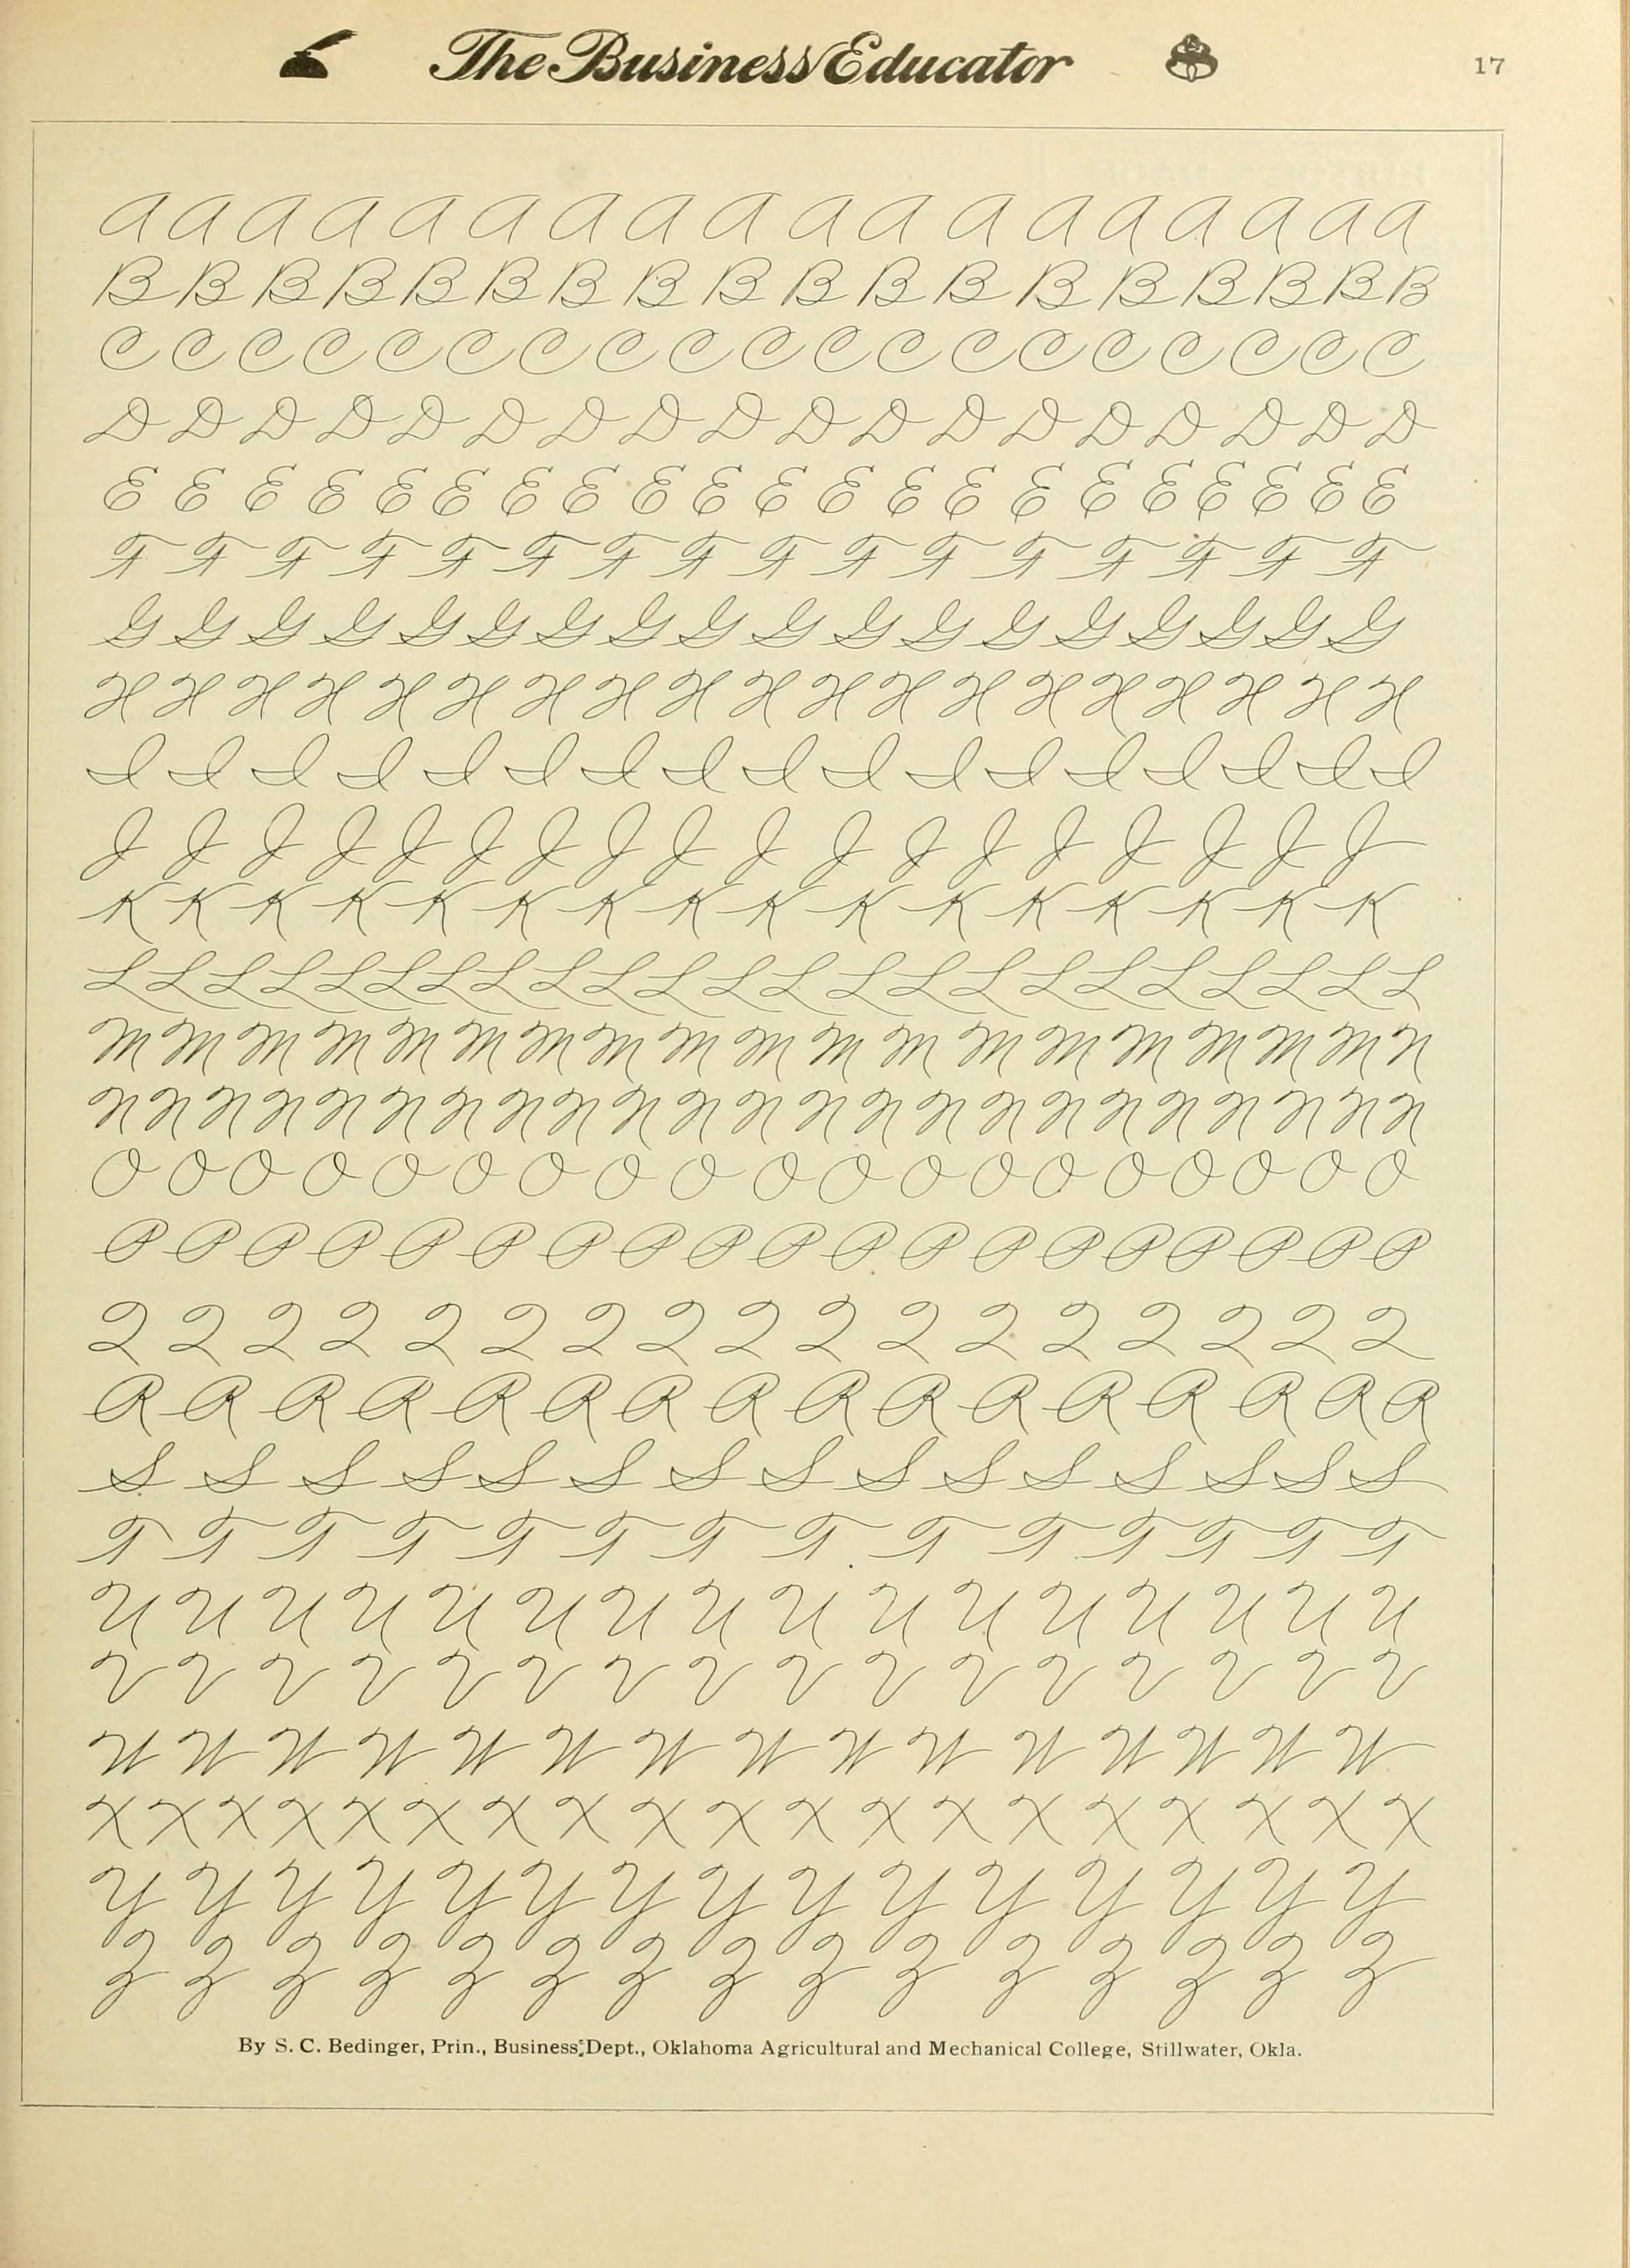 The Business Educator
17
A A A A A A A A A A A A A A A A A A
B B B B B B B B B B B B B B B B B B
C C C C C C C C C C C C C C C C C C C
D D D D D D D D D D D D D D D D D D
E E E E E E E E E E E E E E E E E E E E E
F F F F F F F F F F F F F F F F
G G G G G G G G G G G G G G G G G G
H H H H H H H H H H H H H H H H H H H
I I I I I I I I I I I I I I I I I
J J J J J J J J J J J J J J J J J J
K K K K K K K K K K K K K K K K
L L L L L L L L L L L L L L L L L L L L L L L
M M M M M M M M M M M M M M M M M M N
N N N N N N N N N N N N N N N N N N N N N N N
O O O O O O O O O O O O O O O O O O O
P P P P P P P P P P P P P P P P P P P
Q Q Q Q Q Q Q Q Q Q Q Q Q Q Q Q Q
R R R R R R R R R R R R R R R R
S S S S S S S S S S S S S S S
T T T T T T T T T T T T T T
U U U U U U U U U U U U U U U U
V V V V V V V V V V V V V V V V
W W W W W W W W W W W W W W W
X X X X X X X X X X X X X X X X X X X
Y Y Y Y Y Y Y Y Y Y Y Y Y Y Y
Z Z Z Z Z Z Z Z Z Z Z Z Z Z Z
By S. C. Bedinger, Prin., Business Dept., Oklahoma Agricultural and Mechanical College, Stillwater, Okla.